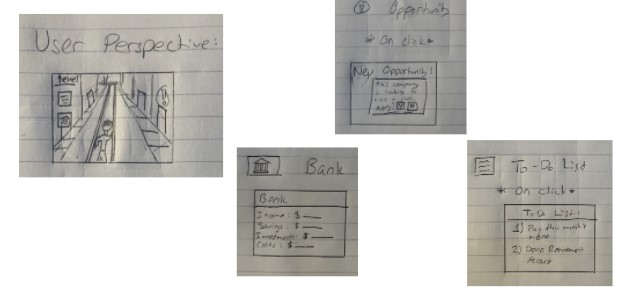 User Perspective:
Level
Opportunity
* On click *
New Opportunity!
This company
is looking to
Apply? Y N
Bank
Bank
Income: $
Savings: $
Investments: $
Costs: $
To-Do List
* On click *
To-Do List:
1) Pay this month's
rent
2) Open Retirement
Account